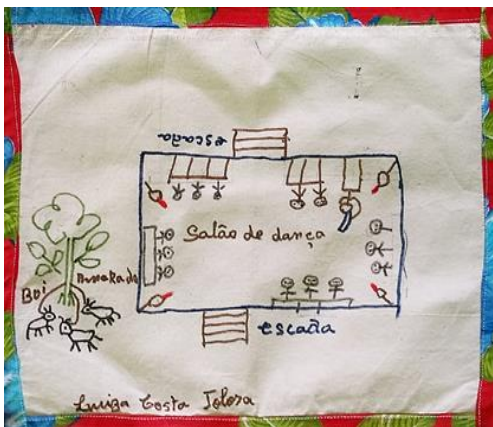 escada
Salão de dança
Boi
escada
Luiza Costa Tolosa